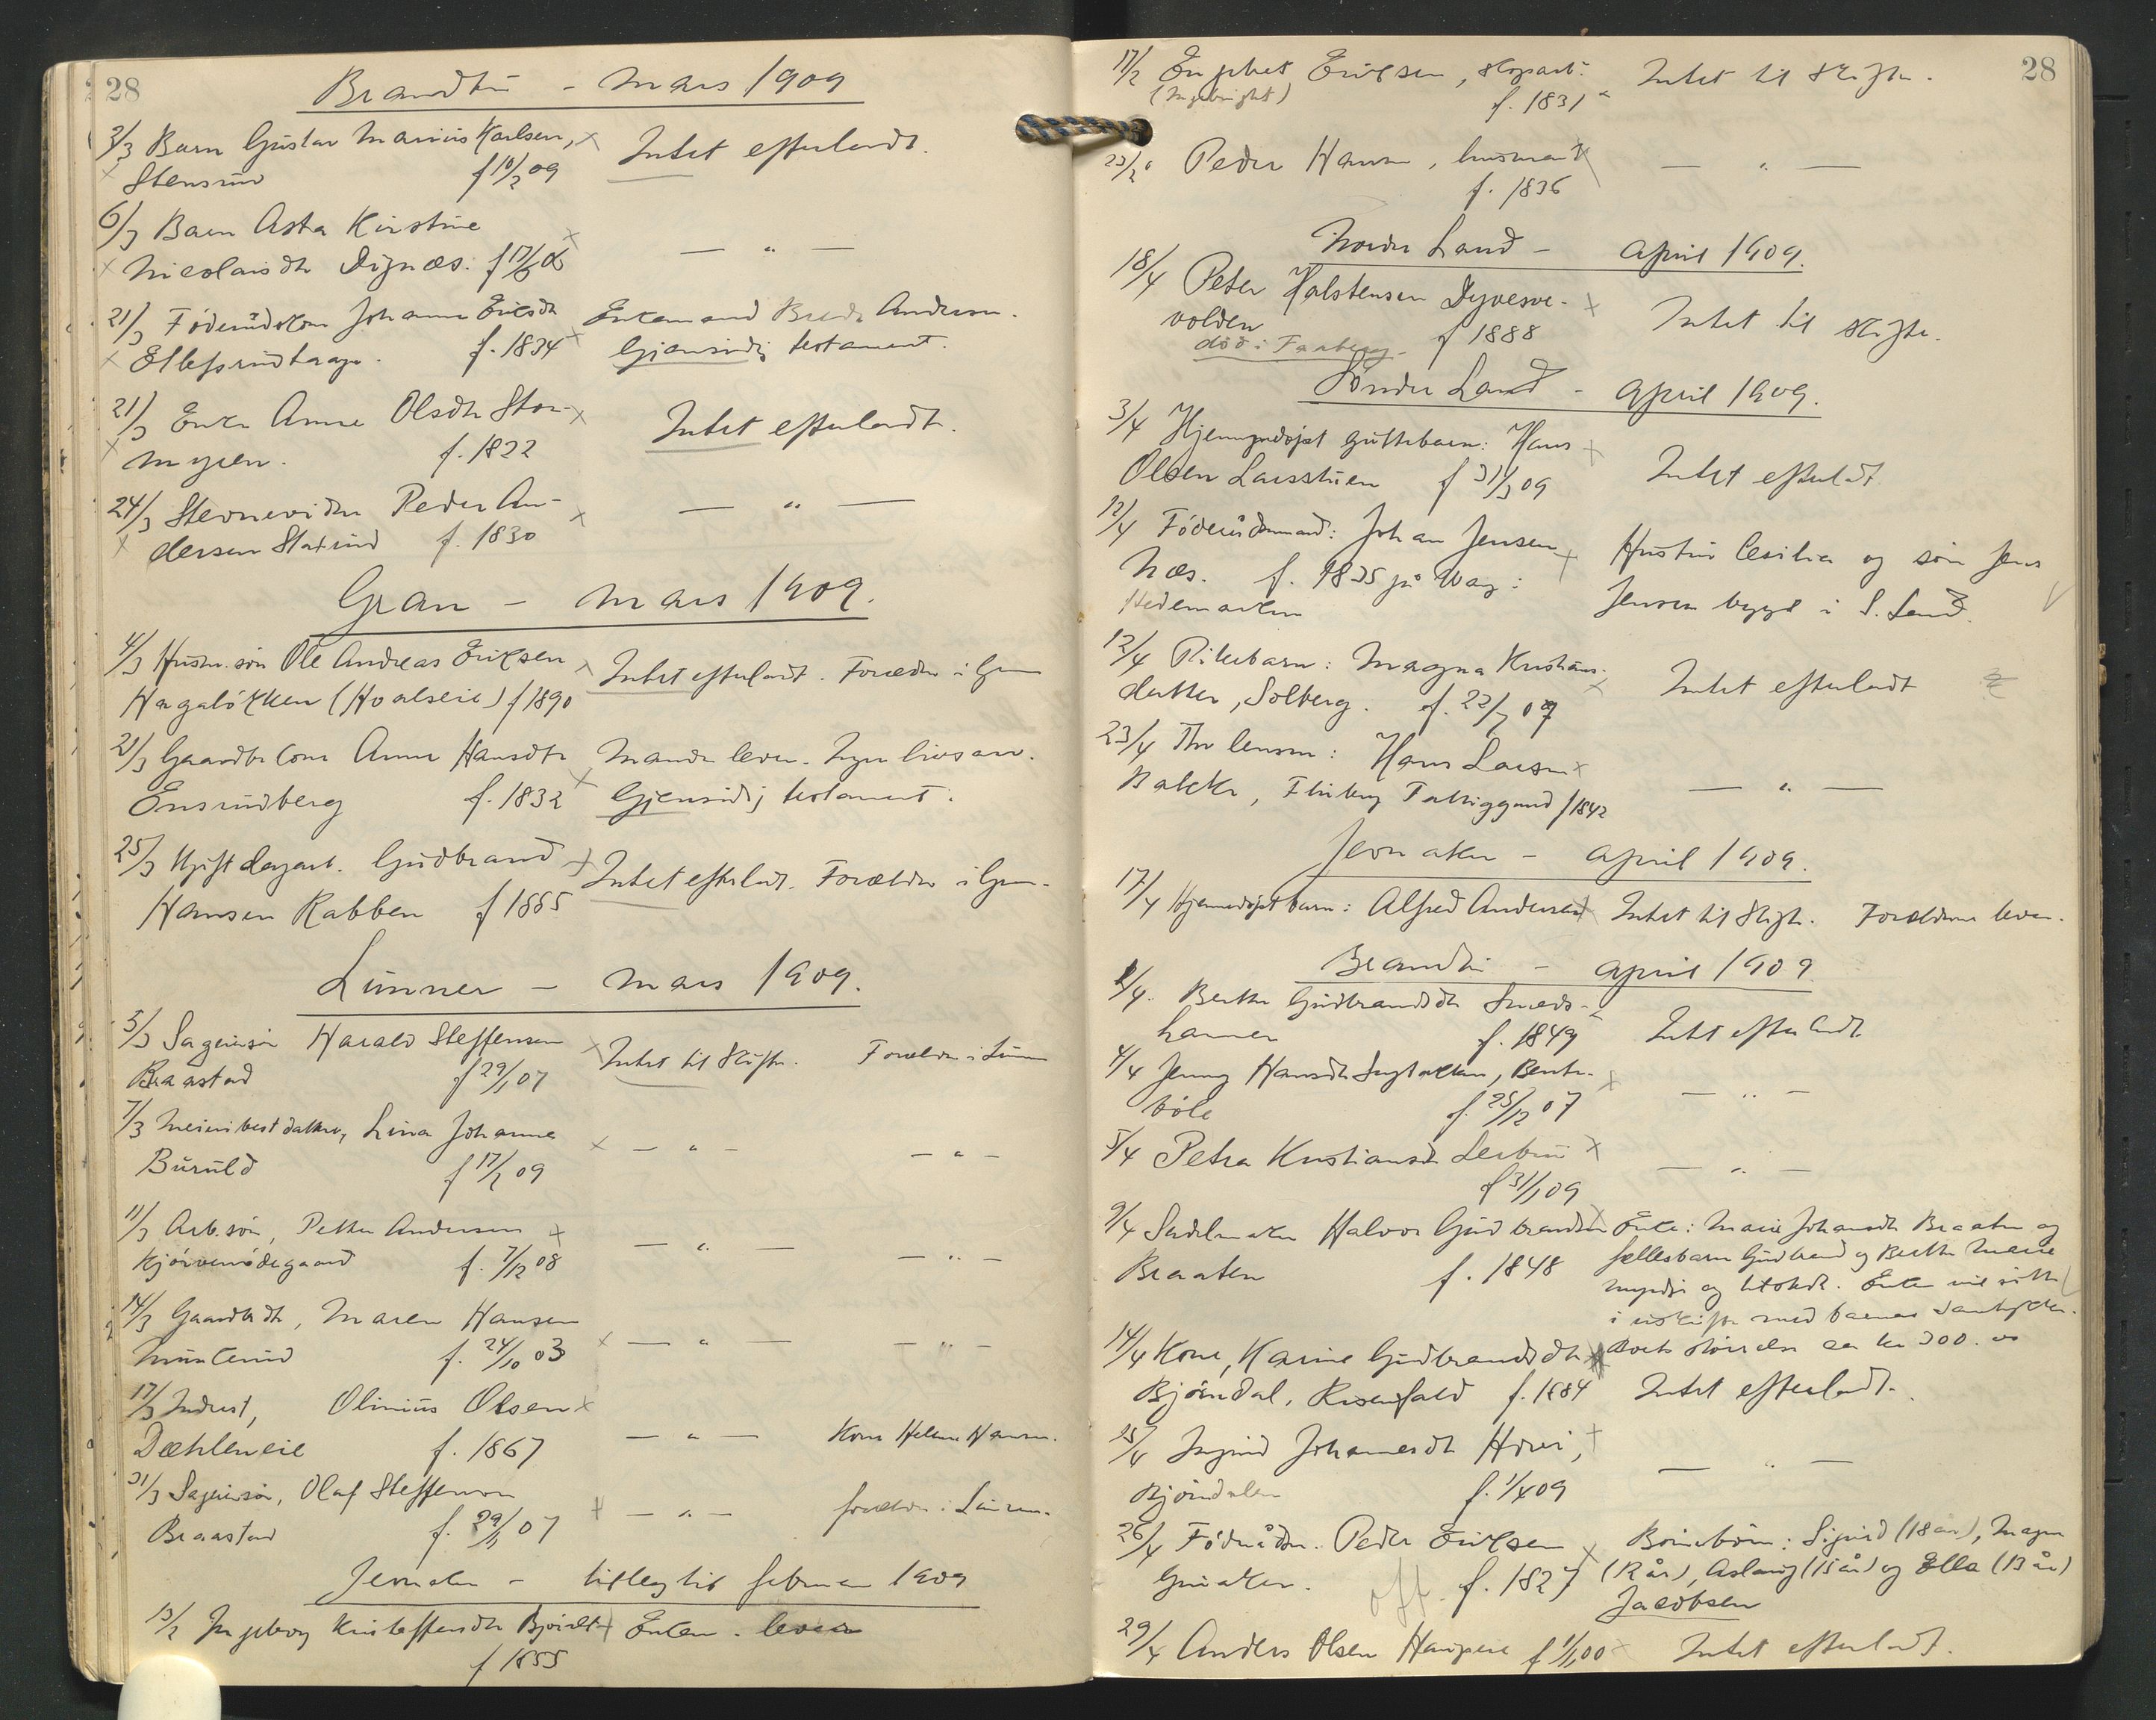 28
Brandbu - Mars 1909
3/3 Barn Gustav Marius Karlsen, x Intet efterladt.
x Stensrud f 16/2 09
6/3 Barn Asta Kirstine x — " —
x Nicolaisdtr Dignæs. f 17/6 08
21/3 Føderådskone Johanne Eriksdtr Enkemand Brede Andersen.
x Ellefsrudhagen. f. 1834 x Gjensidig testament.
21/3 Enke Anne Olsdtr Stor- x Intet efterladt.
x myren. f. 1822
24/3 Stevnevidne Peder An- x — " —
x dersen Slaxrud f. 1830
Gran - Mars 1909.
4/3 Husm. søn Ole Andreas Eriksen x Intet efterladt. Forældre i Gran
Hagaløkken (Hvalseie) f 1890
21/3 Gaardbr kone Anne Hansdtr Manden lever. Ingen livsarv.
Ensrudberg f. 1832 x Gjensidig testament.
25/3 Ugift dagarb. Gudbrand x Intet efterladt. Forældre i Gran.
Hansen Rabben f 1885
Lunner - Mars 1909.
5/3 Sageiersøn Harald Steffensen x Intet til skifte. Forældre i Lunner
Braastad f 29/1 07
7/3 Meieribest datter, Lina Johanne x — " — — " —
Buruld f 17/2 09
11/3 Arb.søn, Petter Andersen x — " — — " —
Kjørvenødegaard f. 7/12 08
14/3 Gaardb dtr, Maren Hansen
Munkerud f. 24/10 03 x — " — — " —
17/3 Indust, Olinius Olsen x
Dæhleneie f. 1867 — " — Kone Helene Hansen.
31/3 Sageiersøn, Olaf Steffensen
Braastad f. 29/1 07 x — " — forældre i Lunner.
Jevnaker - tillæg til februar 1909
13/2 Ingeborg Kristoffersdtr Bjørdt x Enkem. lever
f 1855
28
17/2 Engebret Eriksen, skoparb. Intet til skifte.
(Ingebright) f. 1831
23/2 Peder Hansen, husmand x — " —
f. 1836
Nordre Land - April 1909.
18/4 Peter Halstensen Dyvesve- x Intet til skifte.
volden f 1888
død i Faaberg
Søndre Land - April 1909.
3/4 Hjemmedøpt guttebarn: Hans x
Olsen Larsstuen f 31/3 09 Intet efterladt
12/4 Føderådsmand: Johan Jensen x Hustru Cesilia og søn Jens
Næs. f. 1835 på Vang: Jensen bygsl i S. Land.
Hedemarken
12/4 Pikebarn: Magna Kristians- x Intet efterladt
datter, Solberg. f. 22/7 07
23/4 Fhv lensm: Hans Larsen x
Bakke, Fluberg Fattiggaard f 1842 — " —
Jevnaker - April 1909.
17/4 Hjemmedøpt barn: Alfred Andersen x Intet til skifte. Forældrene lever.
Brandbu - April 1909
2/4. Berthe Gudbrandsdtr Smeds-
hammer f. 1849 Intet efterladt
4/4 Jenny Hansdtr, Bente- x
bøle f. 25/12 07 — " —
5/4 Petra Kristiansdtr Lerbru x — " —
f 31/1 09
9/4 Sadelmaker Halvor Gudbrandsen x Enke: Marie Johansdtr Braaten og
Braaten f. 1848 fællesbarn Gudbrand og Berthe Marie
myndig og tilstede. Enken vil sitte
i uskifte med barnas samtykke.
Boets størrelse ca kr 300.00
14/4 Kone, Karine Gudbrandsdtr x
Bjørndal, Rosenfald f. 1884 Intet efterladt.
25/4 Ingrid Johannesdtr Hovi, x
Bjørndalen f. 1/4 09 — " —
26/4 Føderådsm. Peder Eriksen x Børnebørn: Sigurd (18 år), Magna
Grinaker. off f. 1827 (12 år), Aslaug (15 år) og Ella (13 år)
Jacobsen
29/4 Anders Olsen f 1/1 00 x Intet efterladt.